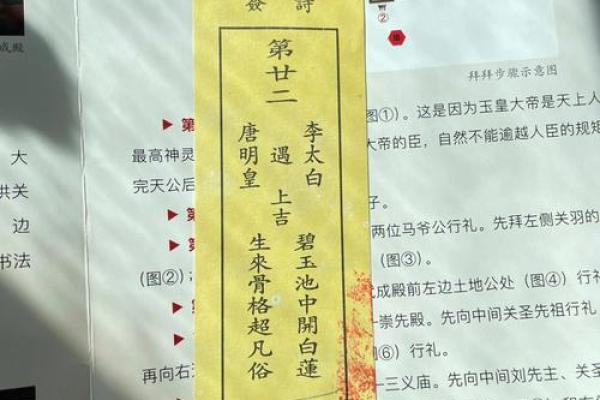 簽 詩
第廿二
李太白
遇
唐明皇
上吉
碧玉池中開白蓮
生來骨格超凡俗
成殿
大
洪关
边
书法
②
拜拜步骤示意图
第
图①）。这是因为玉皇大帝是天上人
最高神灵
大帝的臣，自然不能逾越人臣的规矩
完天公后
子。
两位马爷公行礼。先拜左侧关羽的
（图③）。
（图②）；
成殿前左边土地公处（图④）行礼
崇先殿。先向中间关圣先祖行礼
⑥）行礼。
再向右
三义庙。先向中间刘先主、关圣